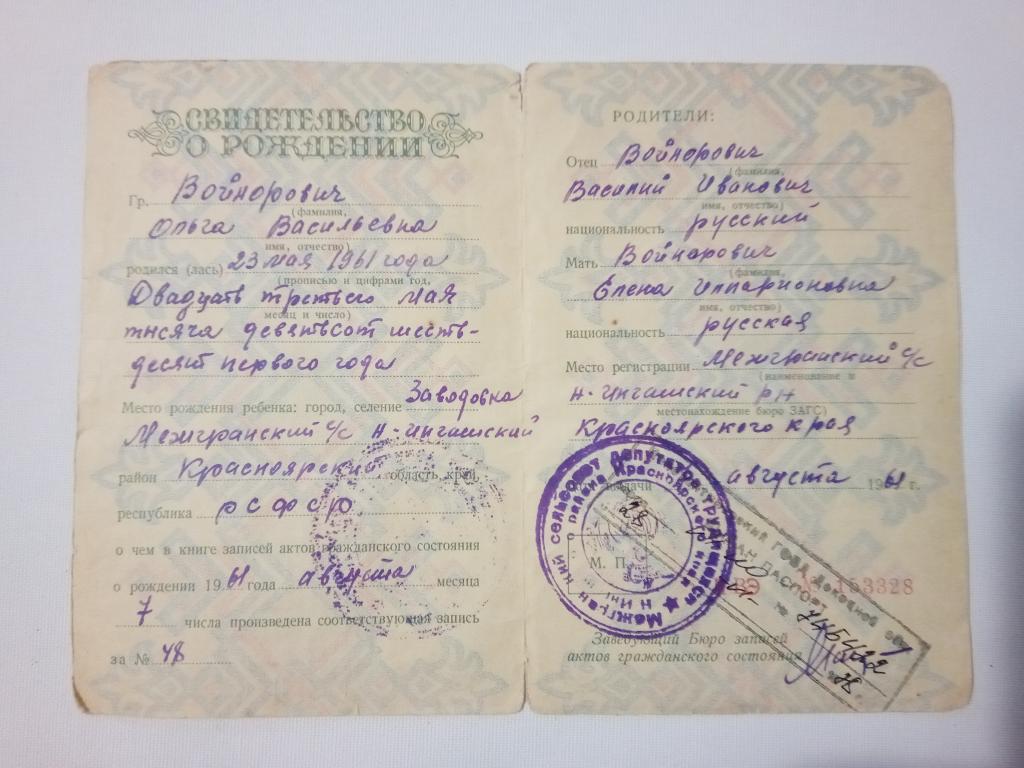 СВИДЕТЕЛЬСТВО
О РОЖДЕНИИ
Гр. Войнорович
(фамилия,
Ольга Васильевна
имя, отчество)
родился (лась) 23 мая 1961 года
(прописью и цифрами год,
Двадцать третьего мая
месяц и число)
тысяча девятьсот шесть-
десят первого года
Место рождения ребенка: город, селение Заводовка
Межгранский с/с Н-Ингашский
район Красноярский область, край
республика РСФСР
о чем в книге записей актов гражданского состояния
о рождении 1961 года августа месяца
7 числа произведена соответствующая запись
за № 48
РОДИТЕЛИ:
Отец Войнорович
(фамилия,
Василий Иванович
имя, отчество)
национальность русский
Мать Войнорович
(фамилия,
Елена Илларионовна
имя, отчество)
национальность русская
Место регистрации Межгранский с/с
(наименование и
Н-Ингашский рн
местонахождение бюро ЗАГС)
Красноярского края
выдачи августа 1961 г.
сельсовет депутатов трудящихся
района Красноярского края
М. П.
№ 153328
ПАСПОРТ
№
Заведующий Бюро записей
актов гражданского состояния